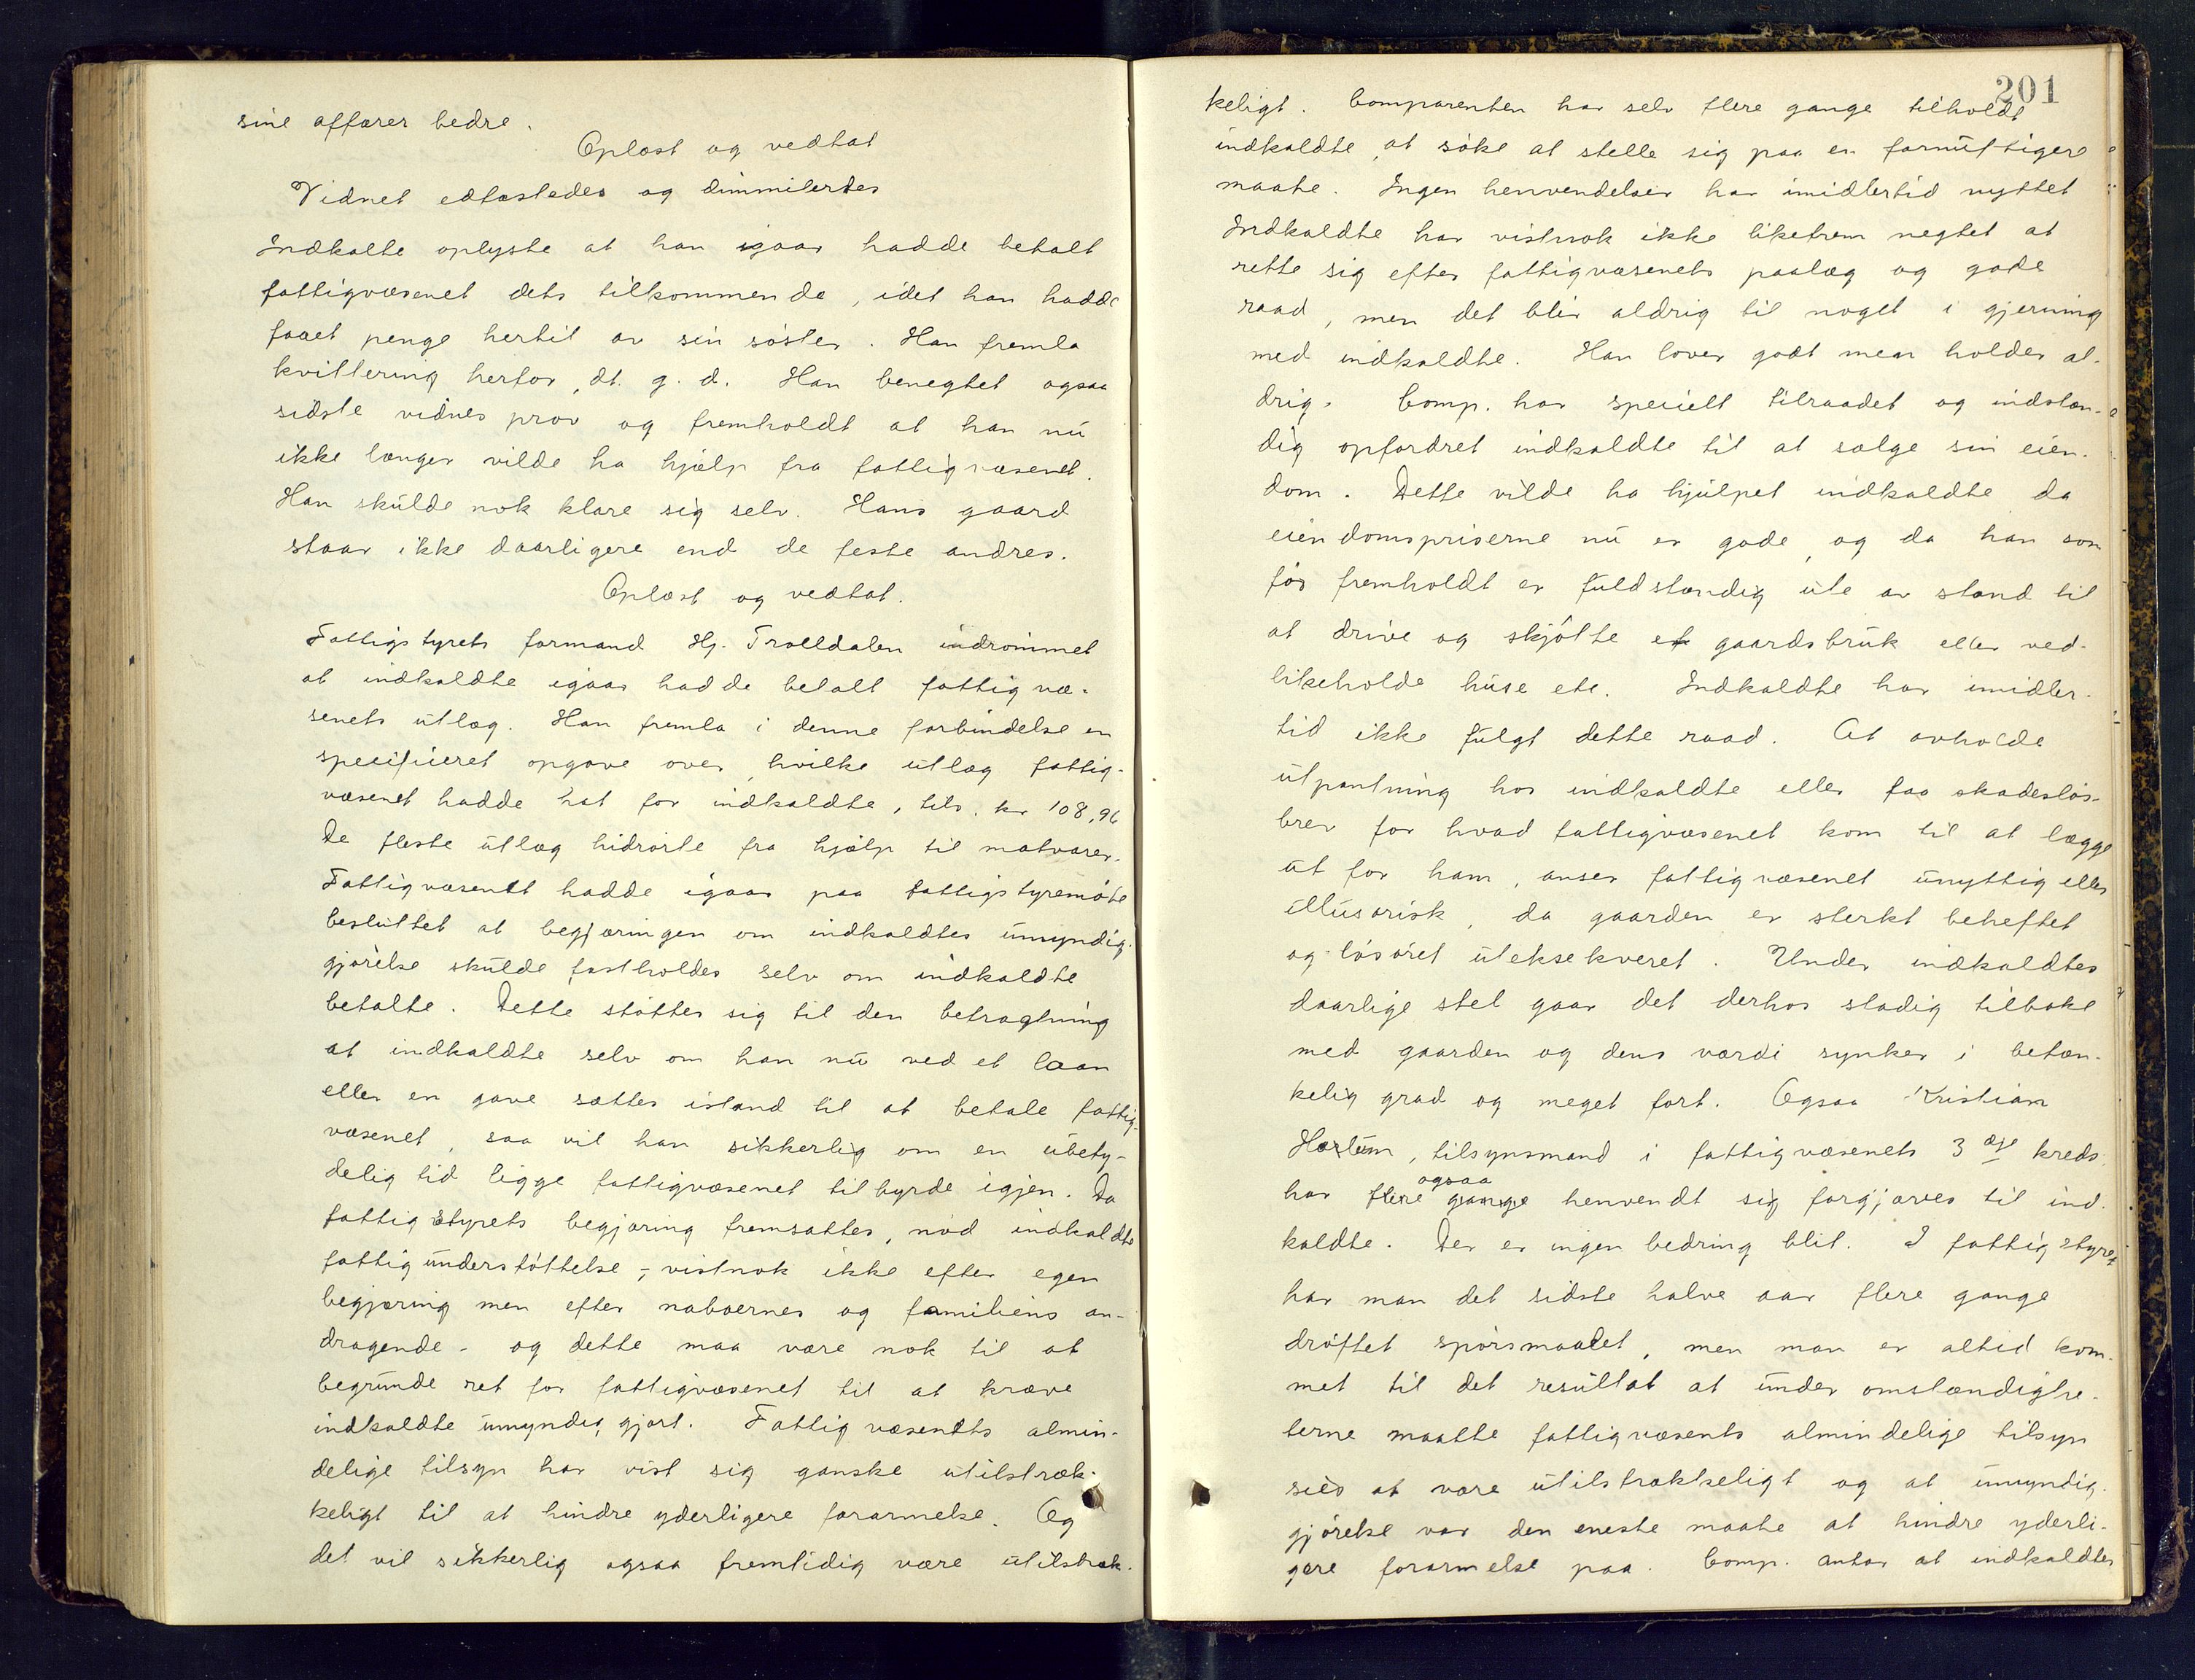 sine affærer bedre.
Oplæst og vedtat
Vidnet edfæstedes og dimmitertes
Indkalte oplyste at han igaar hadde betalt
fattigvæsenet dets tilkommende, idet han hadde
faaet penge hertil av sin søster. Han fremla
kvittering herfor, dt. g. d. Han benegtet ogsaa
sidste vidnes prov og fremholdt at han nu
ikke længer vilde ha hjælp fra fattigvæsenet.
Han skulde nok klare sig selv. Hans gaard
staar ikke daarligere end de feste andres.
Oplæst og vedtat.
Fattigstyrets formand Hj. Trolldalen indrømmet
at indkaldte igaar hadde betalt fattigvæ-
senets utlæg. Han fremla i denne forbindelse en
specificeret opgave over, hvilke utlæg fattig-
væsenet hadde hat for indkaldte, tils. kr 108,96
De fleste utlæg hidrørte fra hjælp til matvarer.
Fattigvæsenet hadde igaar paa fattigstyremøte
besluttet at begjæringen om indkaldtes umyndig-
gjørelse skulde fastholdes selv om indkaldte
betalte. Dette støttes sig til den betragtning
at indkaldte selv om han nu ved et laan
eller en gave sættes istand til at betale fattig-
væsenet, saa vil han sikkerlig om en ubety-
delig tid ligge fattigvæsenet til byrde igjen. Da
fattigstyrets begjæring fremsattes, nød indkaldte
fattigunderstøttelse, - vistnok ikke efter egen
begjæring men efter naboernes og familiens an-
dragende - og dette maa være nok til at
begrunde ret for fattigvæsenet til at kræve
indkaldte umyndiggjort. Fattigvæsenets almin-
delige tilsyn har vist sig ganske utilstræk-
keligt til at hindre yderligere forarmelse. Og
det vil sikkerlig ogsaa fremtidig være utilstræk-
201
keligt. Comparenten har selv flere gange tilholdt
indkaldte, at søke at stelle sig paa en fornuftigere
maate. Ingen henvendelser har imidlertid nyttet
Indkaldte har vistnok ikke liketrem negtet at
rette sig efter fattigvæsenets paalæg og gode
raad, men det blir aldrig til noget i gjerning
med indkaldte. Han lover godt men holder al-
drig. Comp. har specielt tilraadet og indstæn-
dig opfordret indkaldte til at sælge sin eien-
dom. Dette vilde ha hjulpet indkaldte da
eiendomspriserne nu er gode, og da han som
før fremholdt er fuldstændig ute av stand til
at drive og skjøtte et gaardsbruk eller ved-
likeholde huse etc. Indkaldte har imidler-
tid ikke fulgt dette raad. At avholde
utpantning hos indkaldte eller faa skadesløs-
brev for hvad fattigvæsenet kom til at lægge
ut for ham, anser fattigvæsenet unyttig eller
illusorisk, da gaarden er sterkt beheftet
og løsøret uteksekveret. Under indkaldtes
daarlige stel gaar det derhos stadig tilbake
med gaarden og dens værdi synker i betæn-
kelig grad og meget fort. Ogsaa Kristian
Hærlum, tilsynsmand i fattigvæsenets 3 dje kreds
ogsaa
har flere gange henvendt sig forgjæves til ind-
kaldte. Der er ingen bedring blit. I fattigstyret
har man det sidste halve aar flere gange
drøftet spørsmaalet, men man er altid kom-
met til det resultat at under omstændighe-
terne maatte fattigvæsents almindelige tilsyn
sies at være utilstrækkeligt og at umyndig-
gjørelse var den eneste maate at hindre yderli-
gere forarmelse paa. Comp. antar at indkaldtes